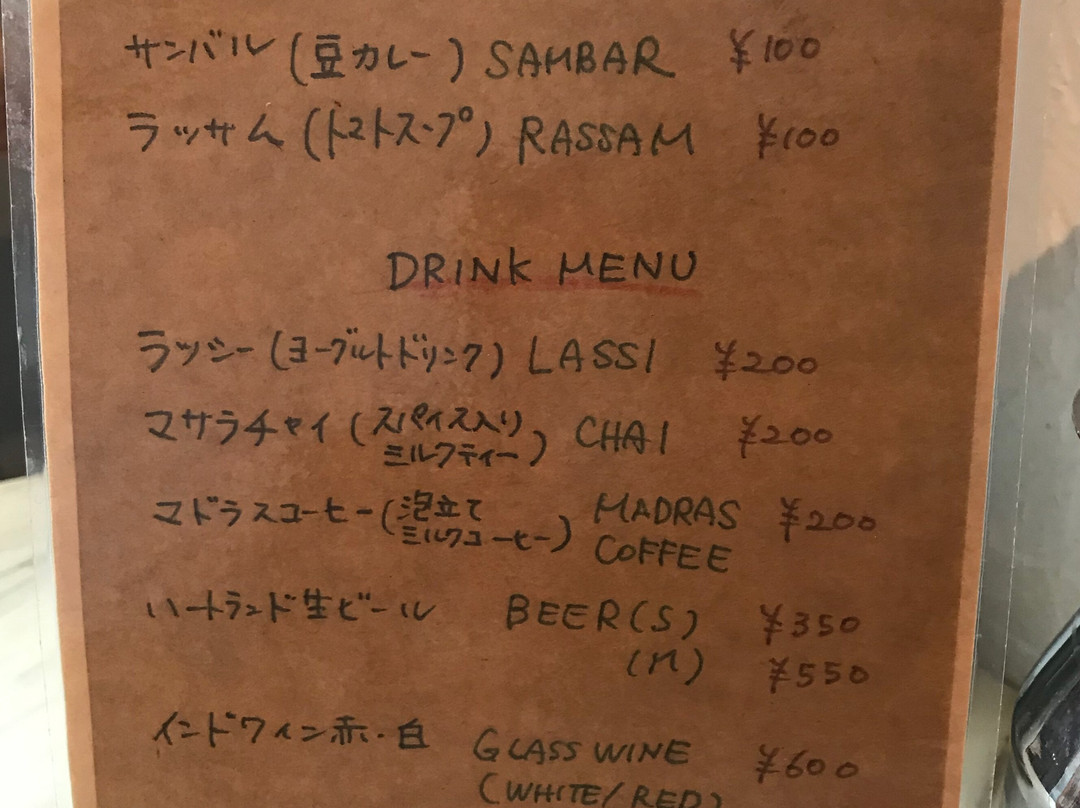 サンバル (豆カレー) SAMBAR ¥100
ラッサム (トマトスープ) RASSAM ¥100
DRINK MENU
ラッシー (ヨーグルトドリンク) LASSI ¥200
マサラチャイ (スパイス入り CHAI ¥200
ミルクティー)
マドラスコーヒー (泡立て MADRAS ¥200
ミルクコーヒー) COFFEE
ハートランド生ビール BEER (S) ¥350
(M) ¥550
インドワイン赤・白 GLASS WINE ¥600
(WHITE/RED)